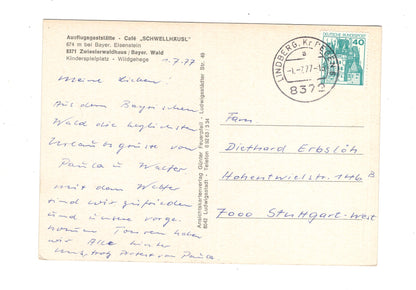 Ausflugsgaststätte - Café „SCHWELLHÄUSL"
674 m bei Bayer. Eisenstein
8371 Zwieslerwaldhaus / Bayer. Wald
Kinderspielplatz - Wildgehege
1.7.77
Meine Lieben!
Aus dem Bayrischen
Wald die herzlichsten
Urlaubsgrüsse von
Paula u Walter
mit dem Wetter
sind wir zufrieden
und unsere vorge-
nommenen Touren haben
wir Alle hinter
uns,
Paula
Ansichtskartenverlag Günter Feuerpfeil · Ludwigsstädter Str. 49
8642 Ludwigsstadt · Telefon
LINDBERG, Kr REGEN
-1.-7.77-1
8372
DEUTSCHE BUNDESPOST
40
Fam.
Diethard Erbslöh
Hohentwielstr. 146 B
7000 Stuttgart-West